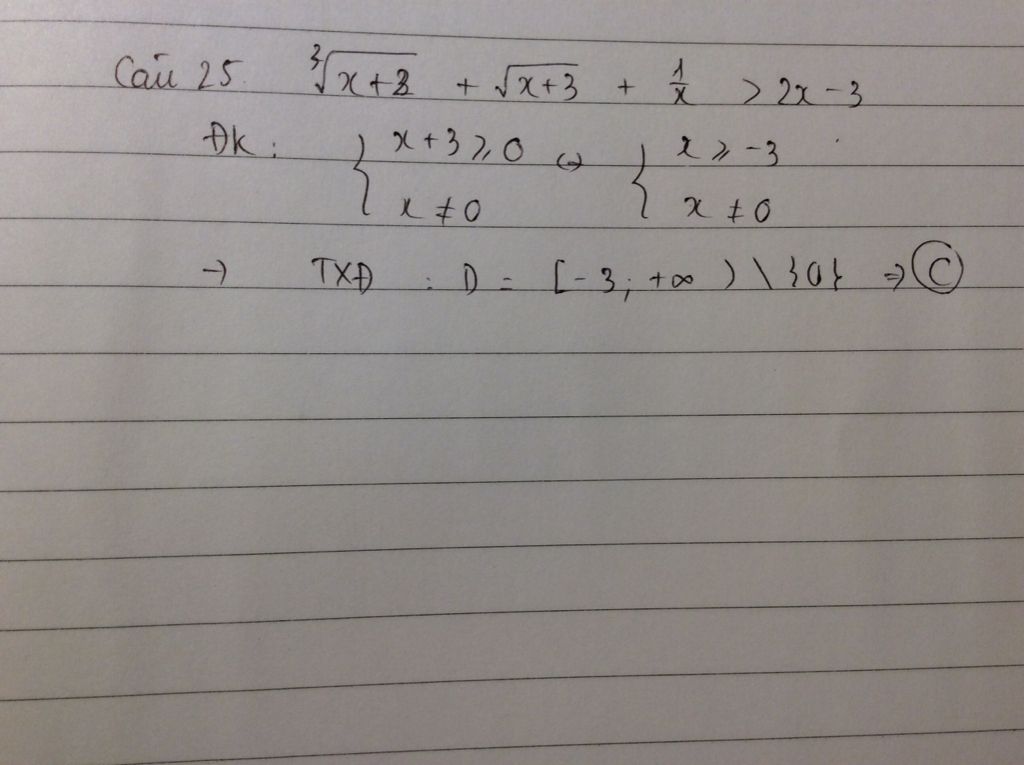 Câu 25. ∛(x+2) + √(x+3) + 1/x > 2x - 3
ĐK: { x + 3 ≥ 0 ⇔ { x ≥ -3
x ≠ 0 x ≠ 0
→ TXĐ : D = [-3; +∞) \ {0} ⇒ C